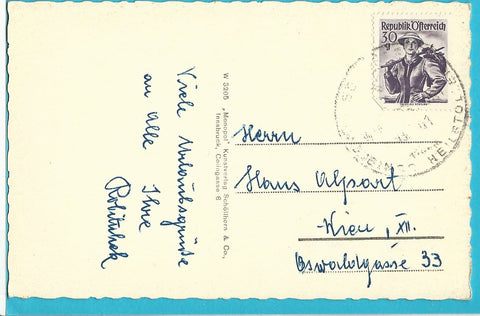 Viele Urlaubsgrüße
an alle Ihre
W 3205 „Monopol" Kunstverlag Schöllhorn & Co.,
Innsbruck, Coingasse 6
Republik Österreich
30
g
Herrn
Hans Alpart
Wien, XII.
Oswaldgasse 33